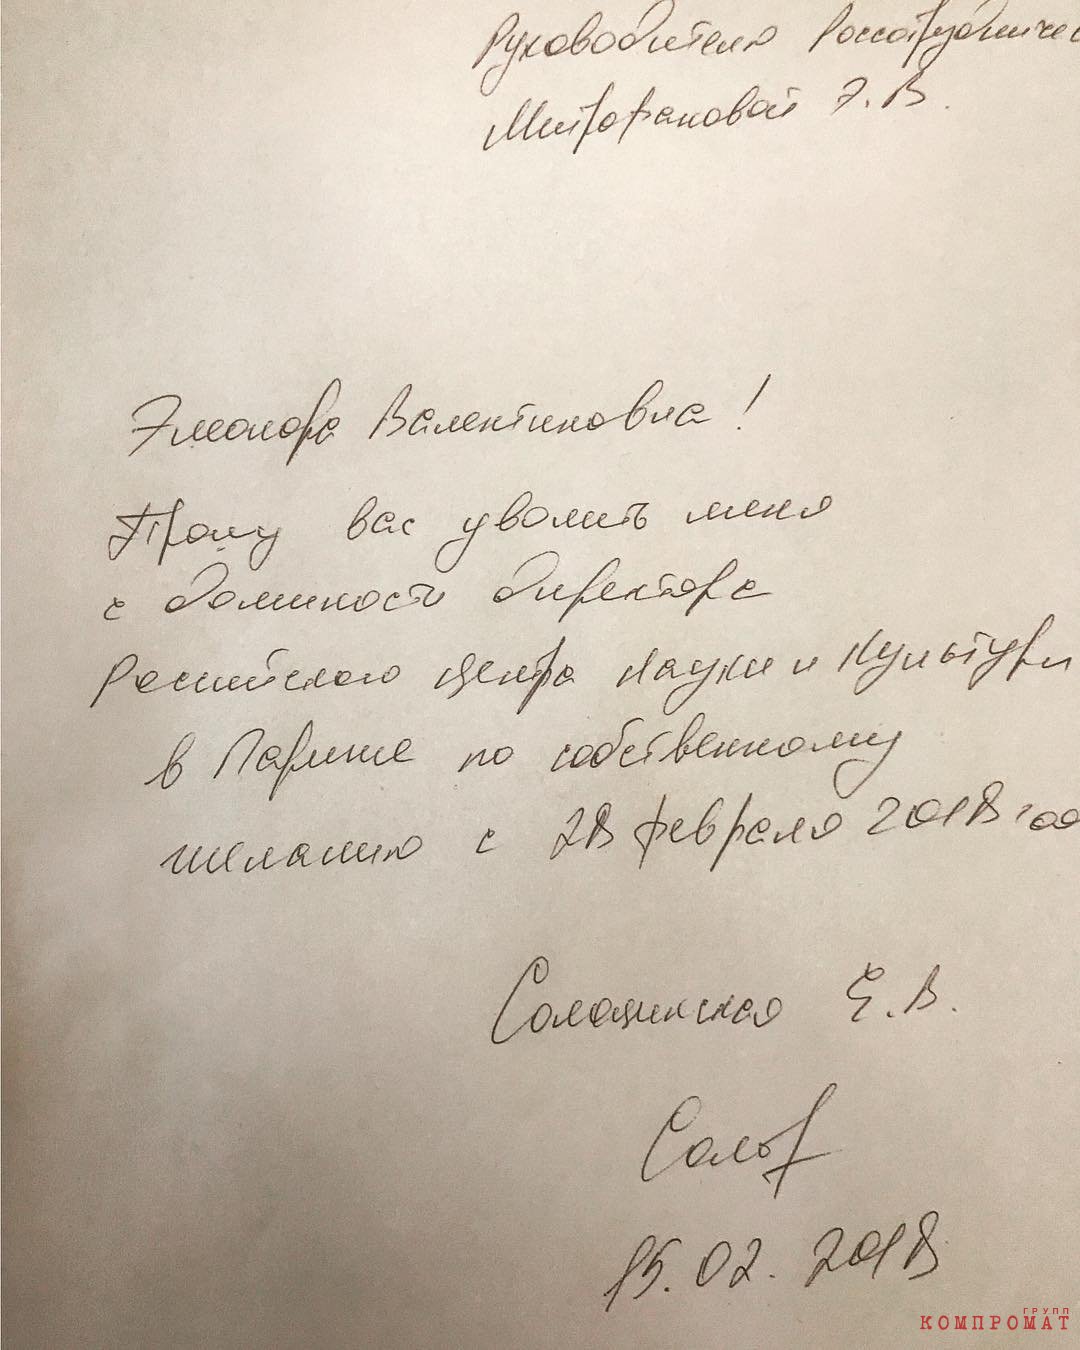 Руководителю Россотрудничес
Митрофановой Э.В.
Элеонора Валентиновна!
Прошу вас уволить меня
с должности директора
Российского центра науки и культуры
в Париже по собственному
желанию с 28 февраля 2018 год
Солоцинская Е.В.
15.02.2018
ГРУПП
КОМПРОМАТ